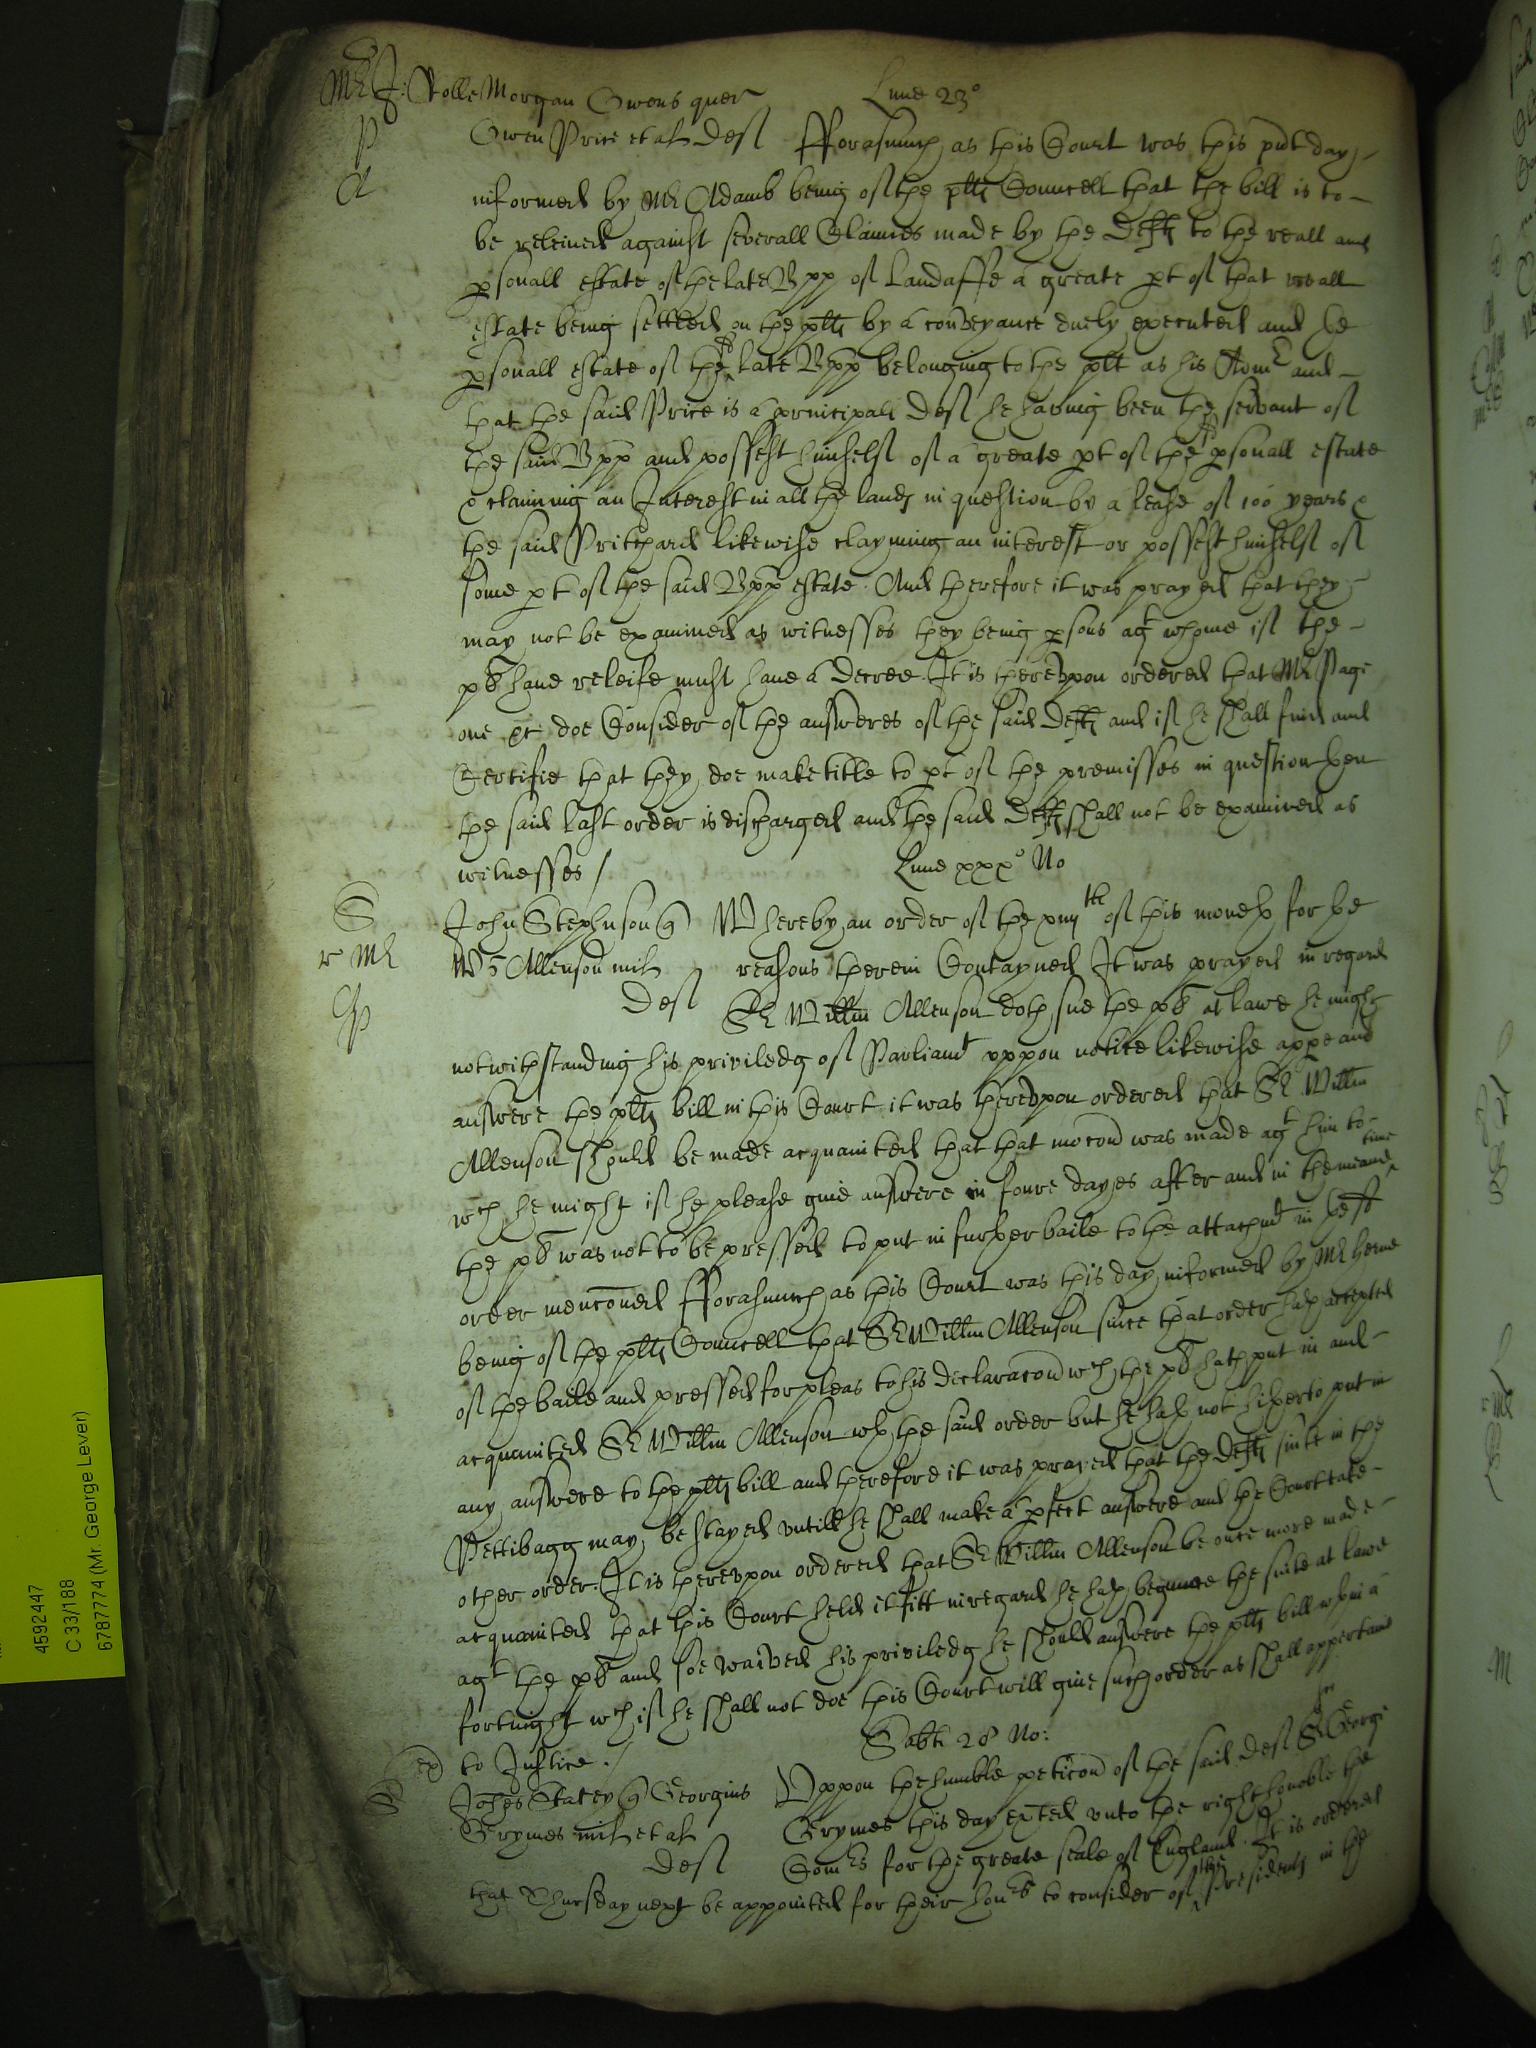 Mr J: Rolle Morgan Owens quer Lune 23°
P Owen Price et al Def Fforasmuch as this Court was this pnt day
A informed by Mr Adams being of the plts Councell that the bill is to
be releived against severall Claimes made by the Defts to the reall and
psonall estate of the late Bpp of Landaffe a greate pt of that reall
estate being setled on the plts by a conveyance duely executed and the
psonall estate of the sd late Bpp belonging to the plt as his Admr and
that the said Price is a principall Def he having been the servant of
the said Bpp and possest himself of a greate pt of the sd psonall estate
& claiming an Interest in all the lands in question by a lease of 100 years &
the said Pritchard likewise clayming an interest or possest himself of
some pt of the said Bpps estate. And therefore it was prayed that they
may not be examined as witnesses they being psons agt whome if the
pt have releife must have a Decree. It is thereupon ordered that Mr Page
one &c doe Consider of the answeres of the said Defts and if he shall find and
Certifie that they doe make title to pt of the premisses in question then
the said last order is discharged and the said Defts shall not be examined as
witnesses / Lune xxx° No
S John Stephnson q Whereby an order of the xiijth of this moneth for the
r Mr Wm Allenson mil reasons therein Contayned It was prayed in regard
Def Sr Willm Allenson doth sue the pt at lawe he might
notwithstanding his priviledg of Parliamt uppon notice likewise appe and
answere the plts bill in this Court it was thereupon ordered that Sr Willm
Allenson should be made acquainted that that mocon was made agt him to
wch he might if he please give answere in foure dayes after and in the meane time
the pt was not to be pressed to put in further baile to the attachmt in the sd
order menconed Fforasmuch as this Court was this day informed by Mr Herne
being of the plts Councell that Sr Willm Allenson since that order hath accepted
of the baile and pressed for pleas to his declaracon wch the pt hath put in and
acquainted Sr Willm Allenson wth the said order but he hath not hitherto put in
any answere to the plts bill and therefore it was prayed that the Defts suite in the
Pettibagg may be stayed untill he shall make a pfect answere and the Court take
other order. It is thereupon ordered that Sr Willm Allenson be once more made
acquainted that this Court held it fitt in regard he hath begunne the suite at lawe
agt the pt and soe waived his priviledg he should answere the plts bill wthin a
fortnight wch if he shall not doe this Court will give such order as shall appertaine
to Justice. / Sabti 28 No:
S Johes Stacey q Georgius Uppon the humble peticon of the said def Sr George
Grymes mil et al Grymes this day exted unto the right honoble the
Def Comrs for the greate seale of England. It is ordered
that Thursday next be appointed for their honrs to consider of the Presidents in the
4592447
C 33/188
6787774 (Mr. George Lever)